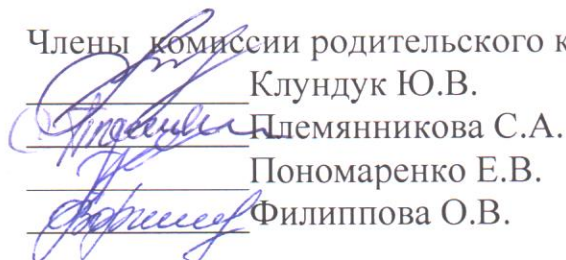 Члены комиссии родительского к
Клундук Ю.В.
Племянникова С.А.
Пономаренко Е.В.
Филиппова О.В.